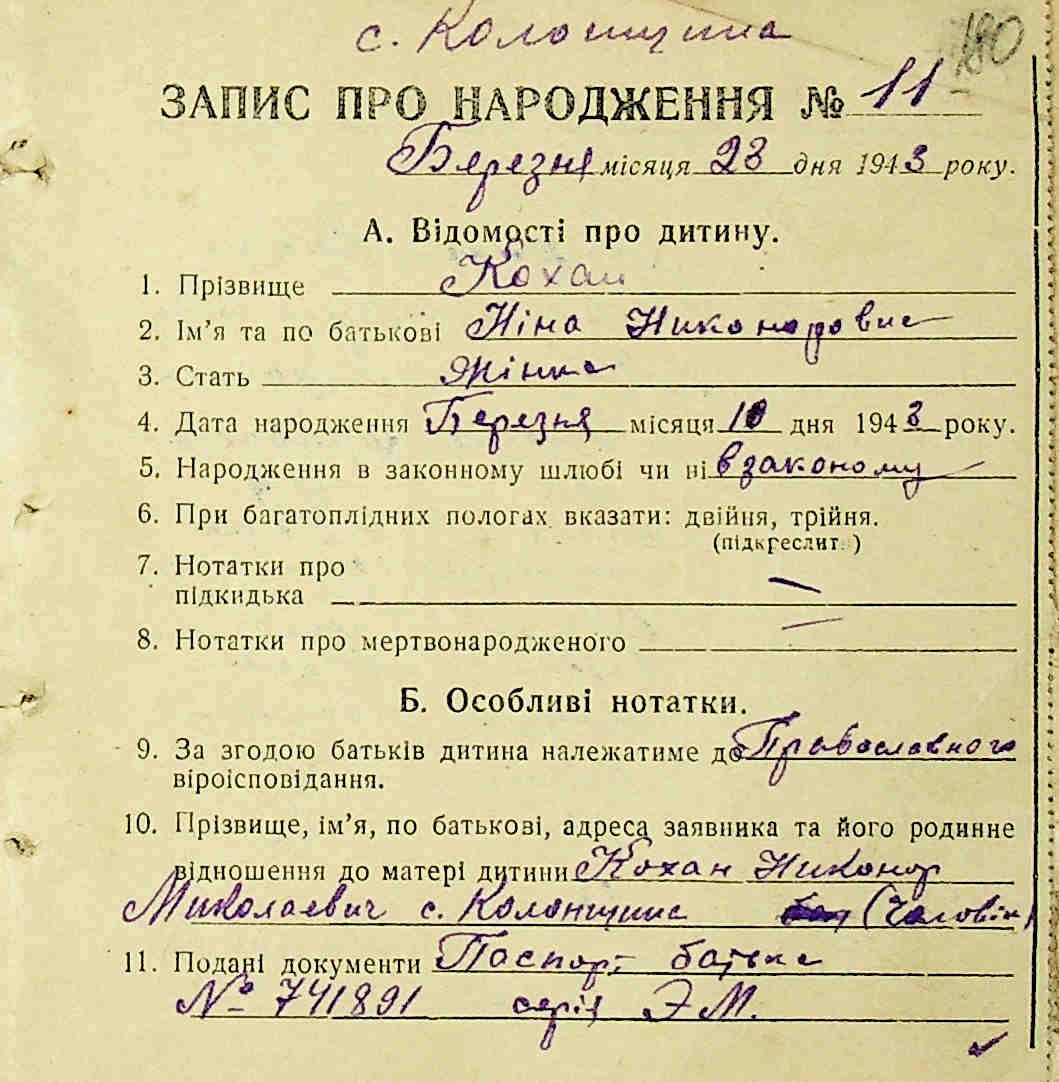 с. Колонщина 180
ЗАПИС ПРО НАРОДЖЕННЯ № 11
Березня місяця 23 дня 1943 року.
А. Відомості про дитину.
1. Прізвище Кохан
2. Ім’я та по батькові Ніна Никоноровне
3. Стать Жінка
4. Дата народження Березня місяця 10 дня 1943 року.
5. Народження в законному шлюбі чи ні в законому
6. При багатоплідних пологах вказати: двійня, трійня.
(підкреслит )
7. Нотатки про
підкидька —
8. Нотатки про мертвонародженого —
Б. Особливі нотатки.
9. За згодою батьків дитина належатиме до Православного
віроісповідання.
10. Прізвище, ім’я, по батькові, адреса заявника та його родинне
відношення до матері дитини Кохан Никонор
Миколаевич с. Колонщина (Чаловік)
11. Подані документи Паспорт батька
№ 741891 серія ЭМ.